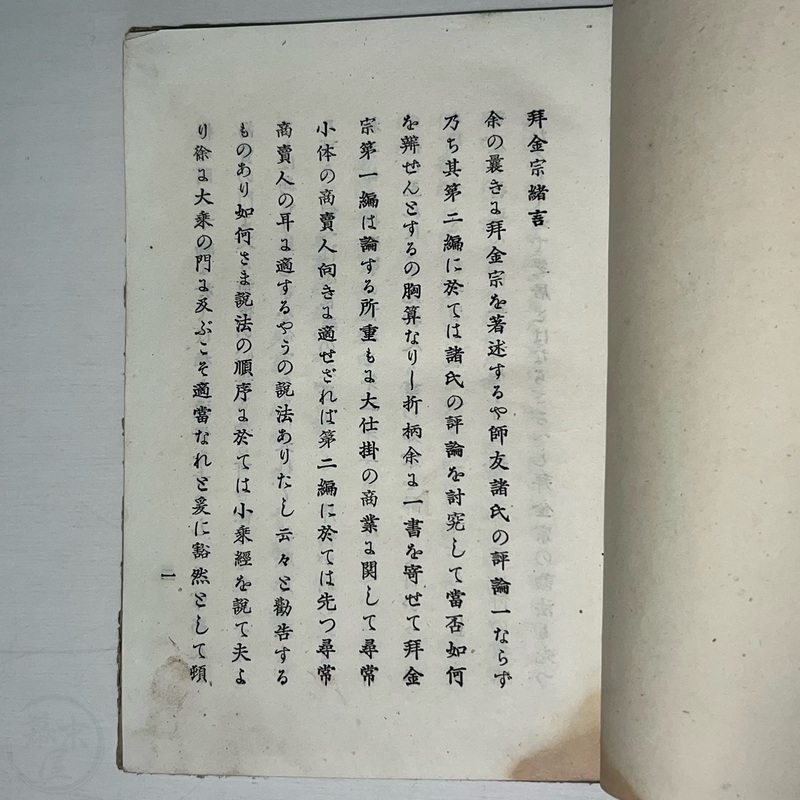 拜金宗緒言
余の曩きに拜金宗を著述するや師友諸氏の評論一ならず
乃ち其第二編に於ては諸氏の評論を討究して當否如何
を辨ぜんとするの胸算なりし折柄余に一書を寄せて拜金
宗第一編は論ずる所重もに大仕掛の商業に関して尋常
小体の商賣人向きに適せざれば第二編に於ては先つ尋常
商賣人の耳に適するやうの説法ありたし云々と勸告する
ものあり如何さま説法の順序に於ては小乘經を説て夫よ
り徐に大乘の門に及ぶこそ適當なれと爰に豁然として頓
一